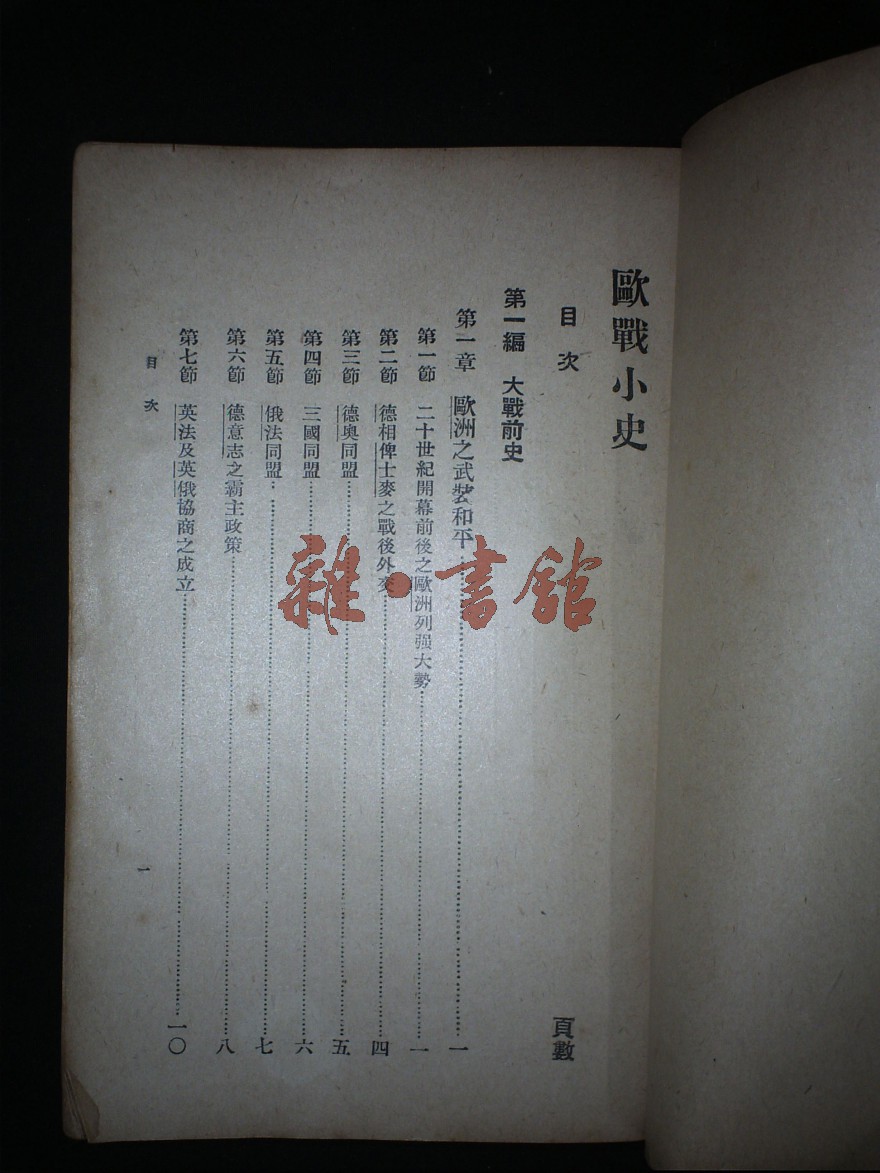 歐戰小史
目次
頁數
第一編 大戰前史
第一章 歐洲之武裝和平……一
第一節 二十世紀開幕前後之歐洲列强大勢……一
第二節 德相俾士麥之戰後外交……四
第三節 德奧同盟……五
第四節 三國同盟……六
第五節 俄法同盟……七
第六節 德意志之霸主政策……八
第七節 英法及英俄協商之成立……一〇
目次
一
雜·書館